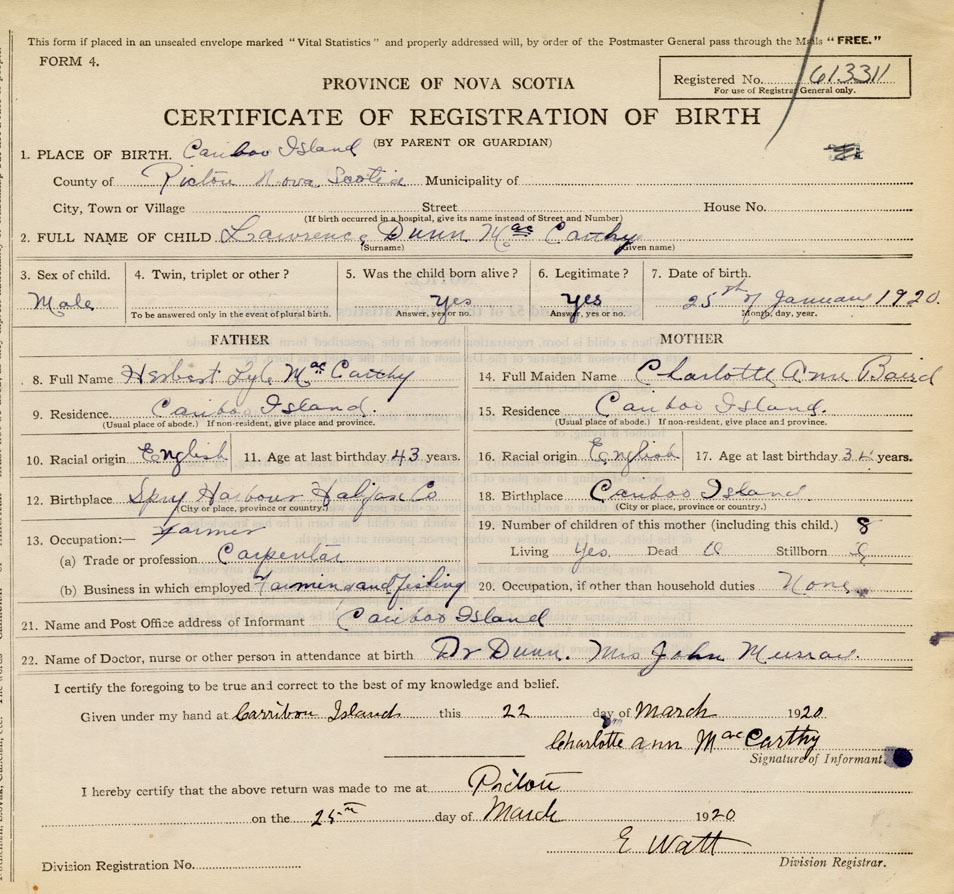 This form if placed in an unsealed envelope marked "Vital Statistics" and properly addressed will, by order of the Postmaster General pass through the Mails "FREE."
FORM 4.
Registered No. 613311
For use of Registrar General only.
PROVINCE OF NOVA SCOTIA
CERTIFICATE OF REGISTRATION OF BIRTH
(BY PARENT OR GUARDIAN)
1. PLACE OF BIRTH. Cariboo Island
County of Pictou Nova Scotia Municipality of
City, Town or Village Street House No.
(If birth occurred in a hospital, give its name instead of Street and Number)
2. FULL NAME OF CHILD Lawrence Dunn MacCarthy
(Surname) (Given name)
3. Sex of child. 4. Twin, triplet or other? 5. Was the child born alive? 6. Legitimate? 7. Date of birth.
Male yes yes 25th of January 1920.
To be answered only in the event of plural birth. Answer, yes or no. Answer, yes or no. Month, day, year.
FATHER MOTHER
8. Full Name Herbert Lyle MacCarthy 14. Full Maiden Name Charlotte Ann Baird
9. Residence. Cariboo Island. 15. Residence Cariboo Island.
(Usual place of abode.) If non-resident, give place and province. (Usual place of abode.) If non-resident, give place and province.
10. Racial origin English 11. Age at last birthday 43 years. 16. Racial origin English 17. Age at last birthday years.
12. Birthplace Spry Harbour Halifax Co 18. Birthplace Cariboo Island.
(City or place, province or country.) (City or place, province or country.)
13. Occupation:— Farmer 19. Number of children of this mother (including this child.) 8
(a) Trade or profession Carpenter Living Yes Dead 0 Stillborn
(b) Business in which employed Farming and fishing 20. Occupation, if other than household duties None
21. Name and Post Office address of Informant Cariboo Island
22. Name of Doctor, nurse or other person in attendance at birth Dr Dunn. Mrs John Murray.
I certify the foregoing to be true and correct to the best of my knowledge and belief.
Given under my hand at Carribou Island this 22 day of March 1920
Charlotte ann MacCarthy
Signature of Informant.
I hereby certify that the above return was made to me at Pictou
on the 25th day of March 1920
E Watt
Division Registration No. Division Registrar.